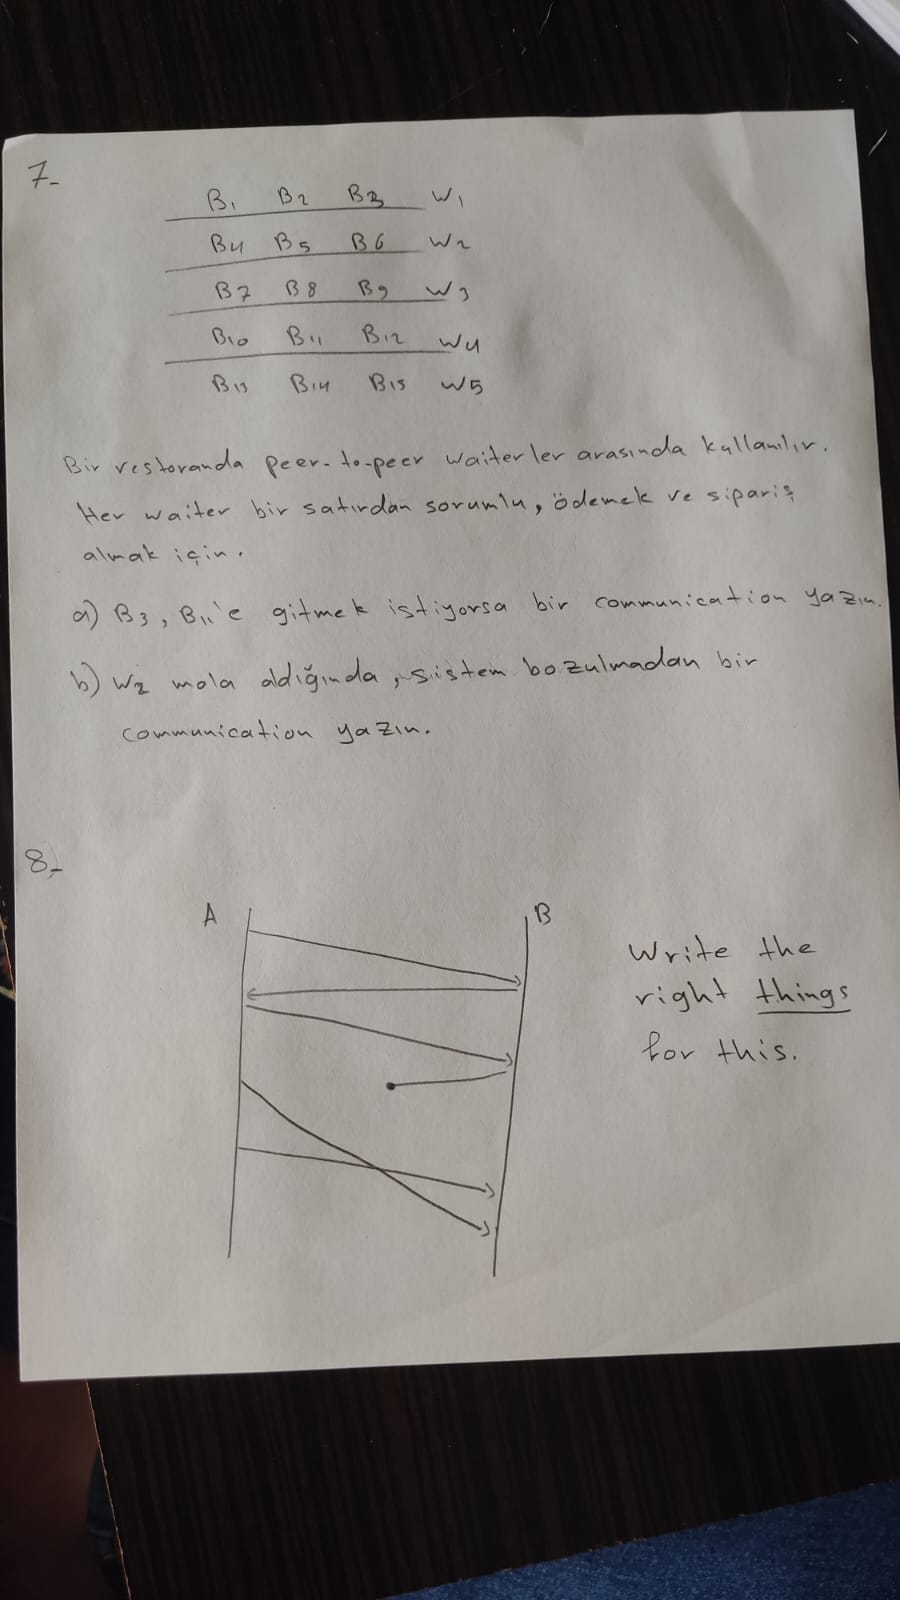 7-
B1 B2 B3 W1
B4 B5 B6 W2
B7 B8 B9 W3
B10 B11 B12 W4
B13 B14 B15 W5
Bir restoranda peer-to-peer waiterler arasında kullanılır.
Her waiter bir satırdan sorumlu, ödemek ve sipariş
almak için.
a) B3, B11'e gitmek istiyorsa bir communication yazın.
b) W2 mola aldığında, sistem bozulmadan bir
communication yazın.
8-
A B
Write the
right things
for this.